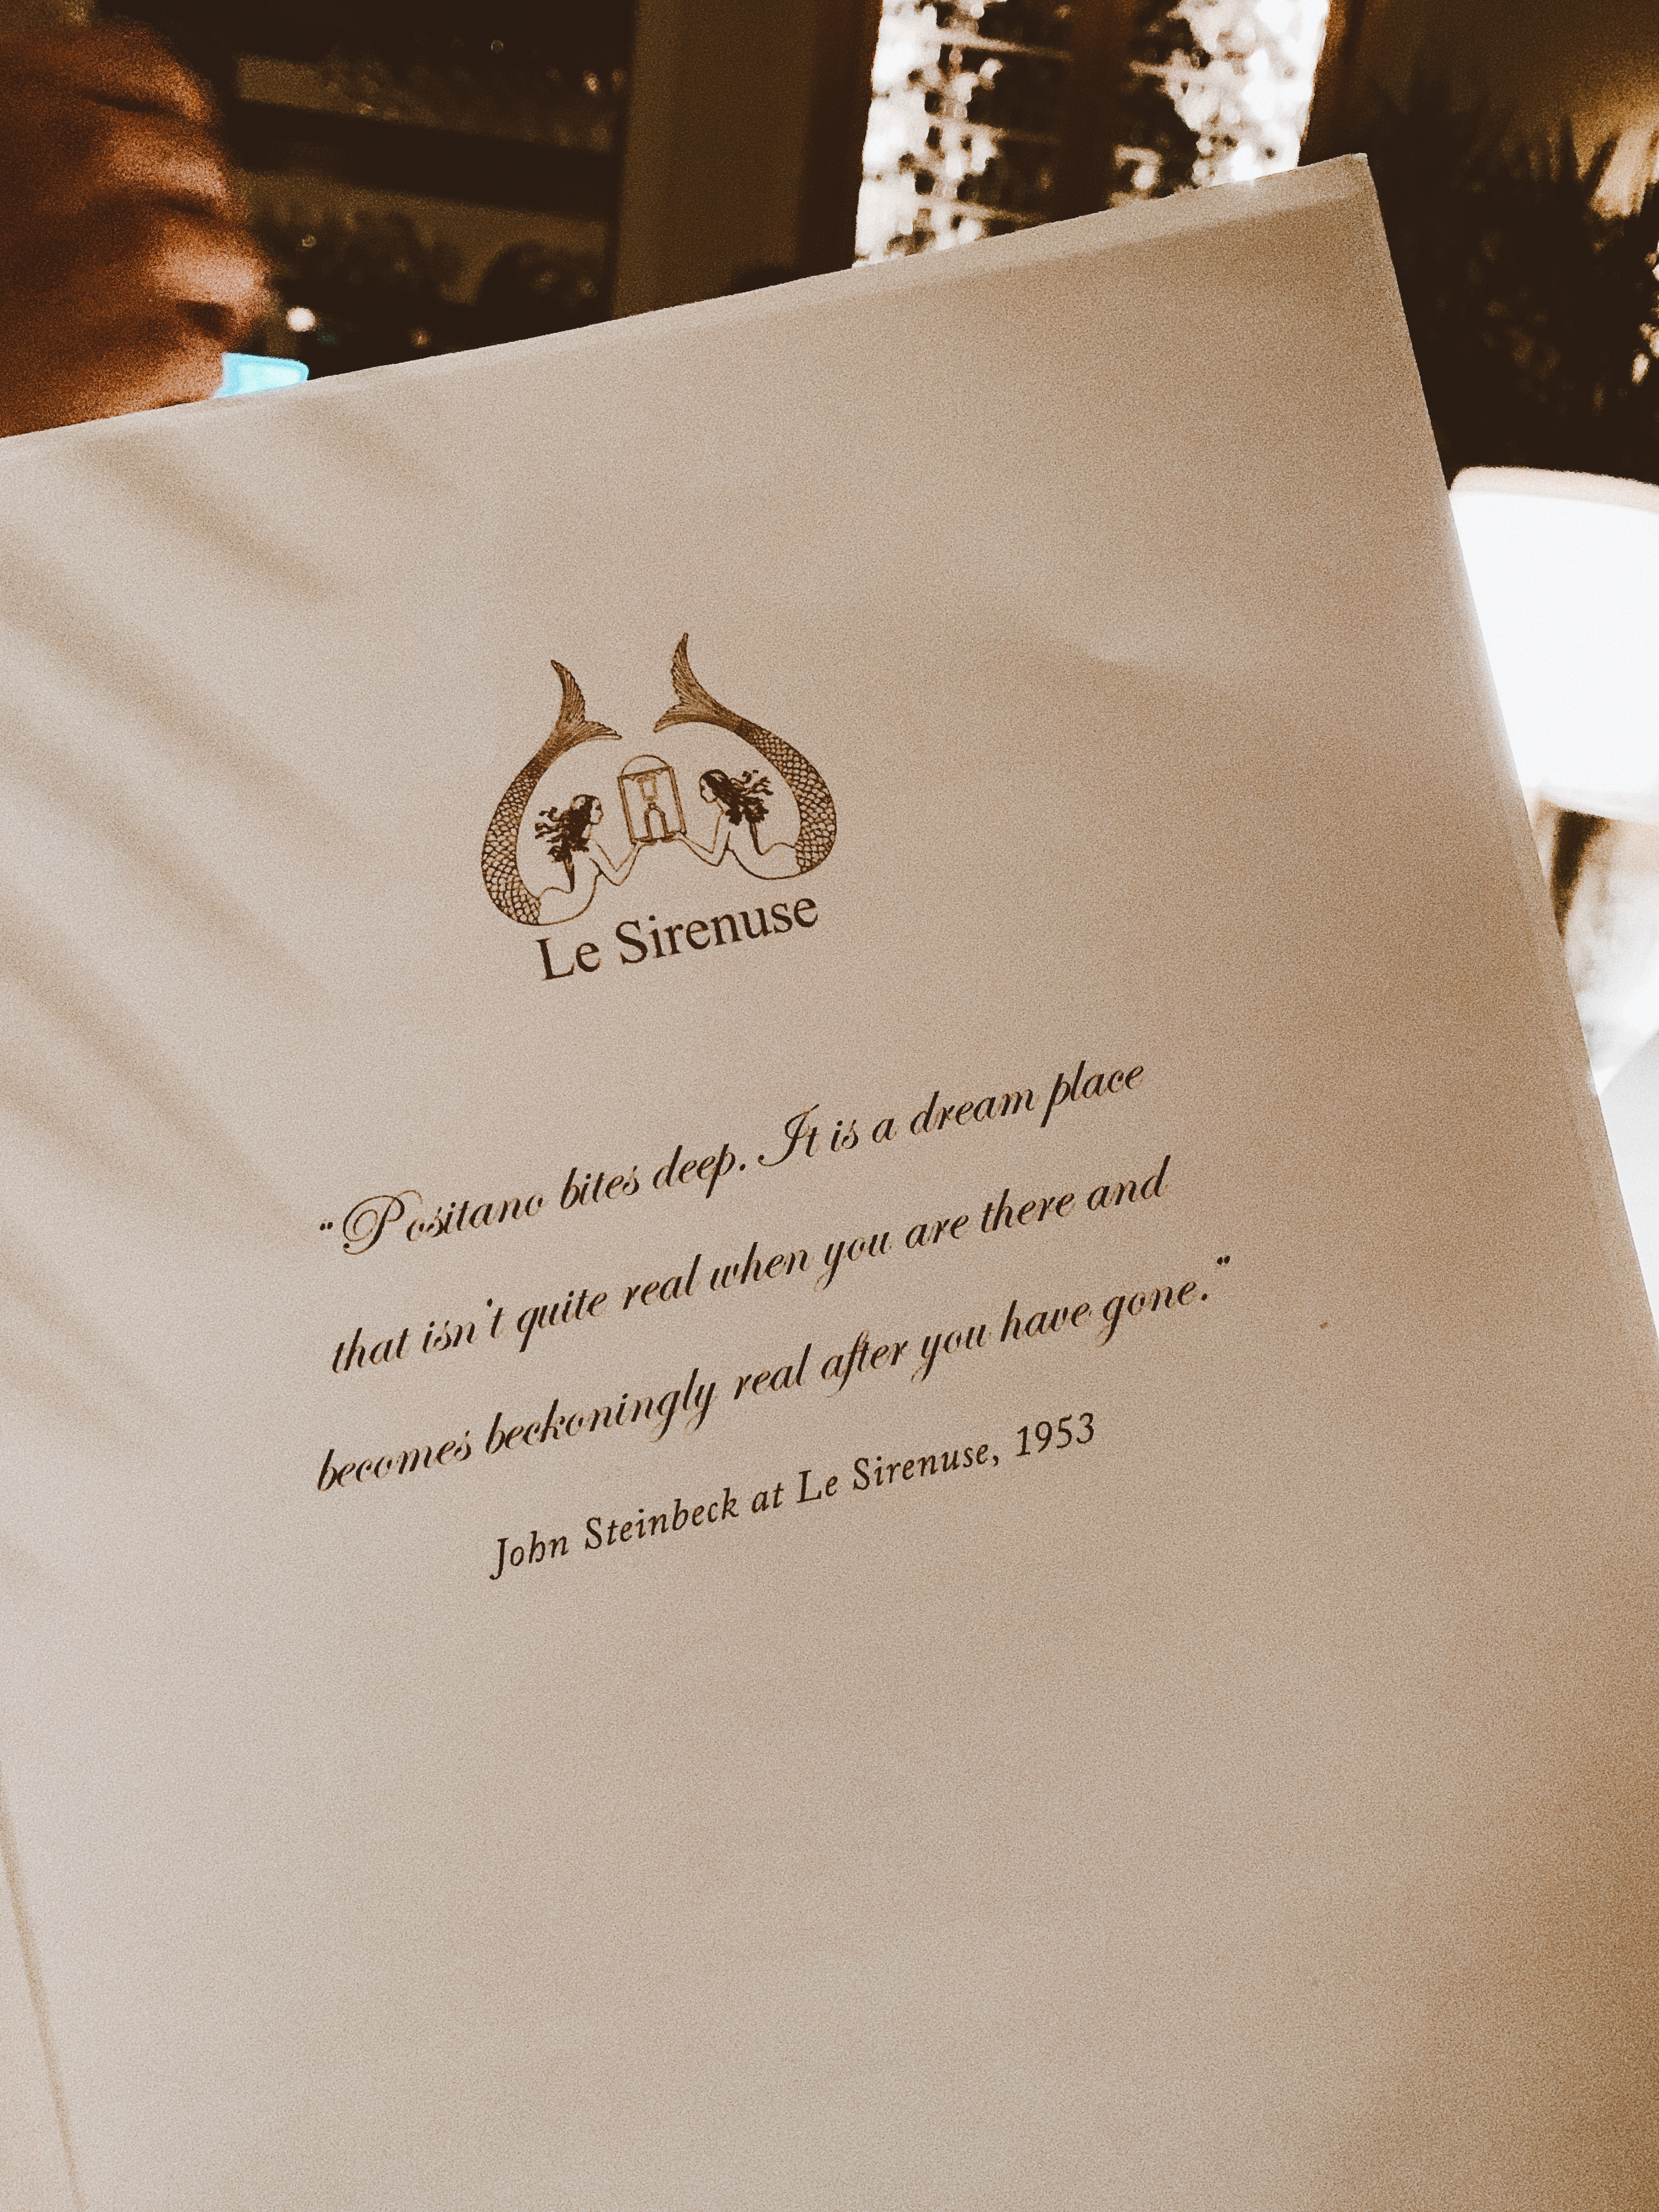 Le Sirenuse
“Positano bites deep. It is a dream place
that isn’t quite real when you are there and
becomes beckoningly real after you have gone.”
John Steinbeck at Le Sirenuse, 1953